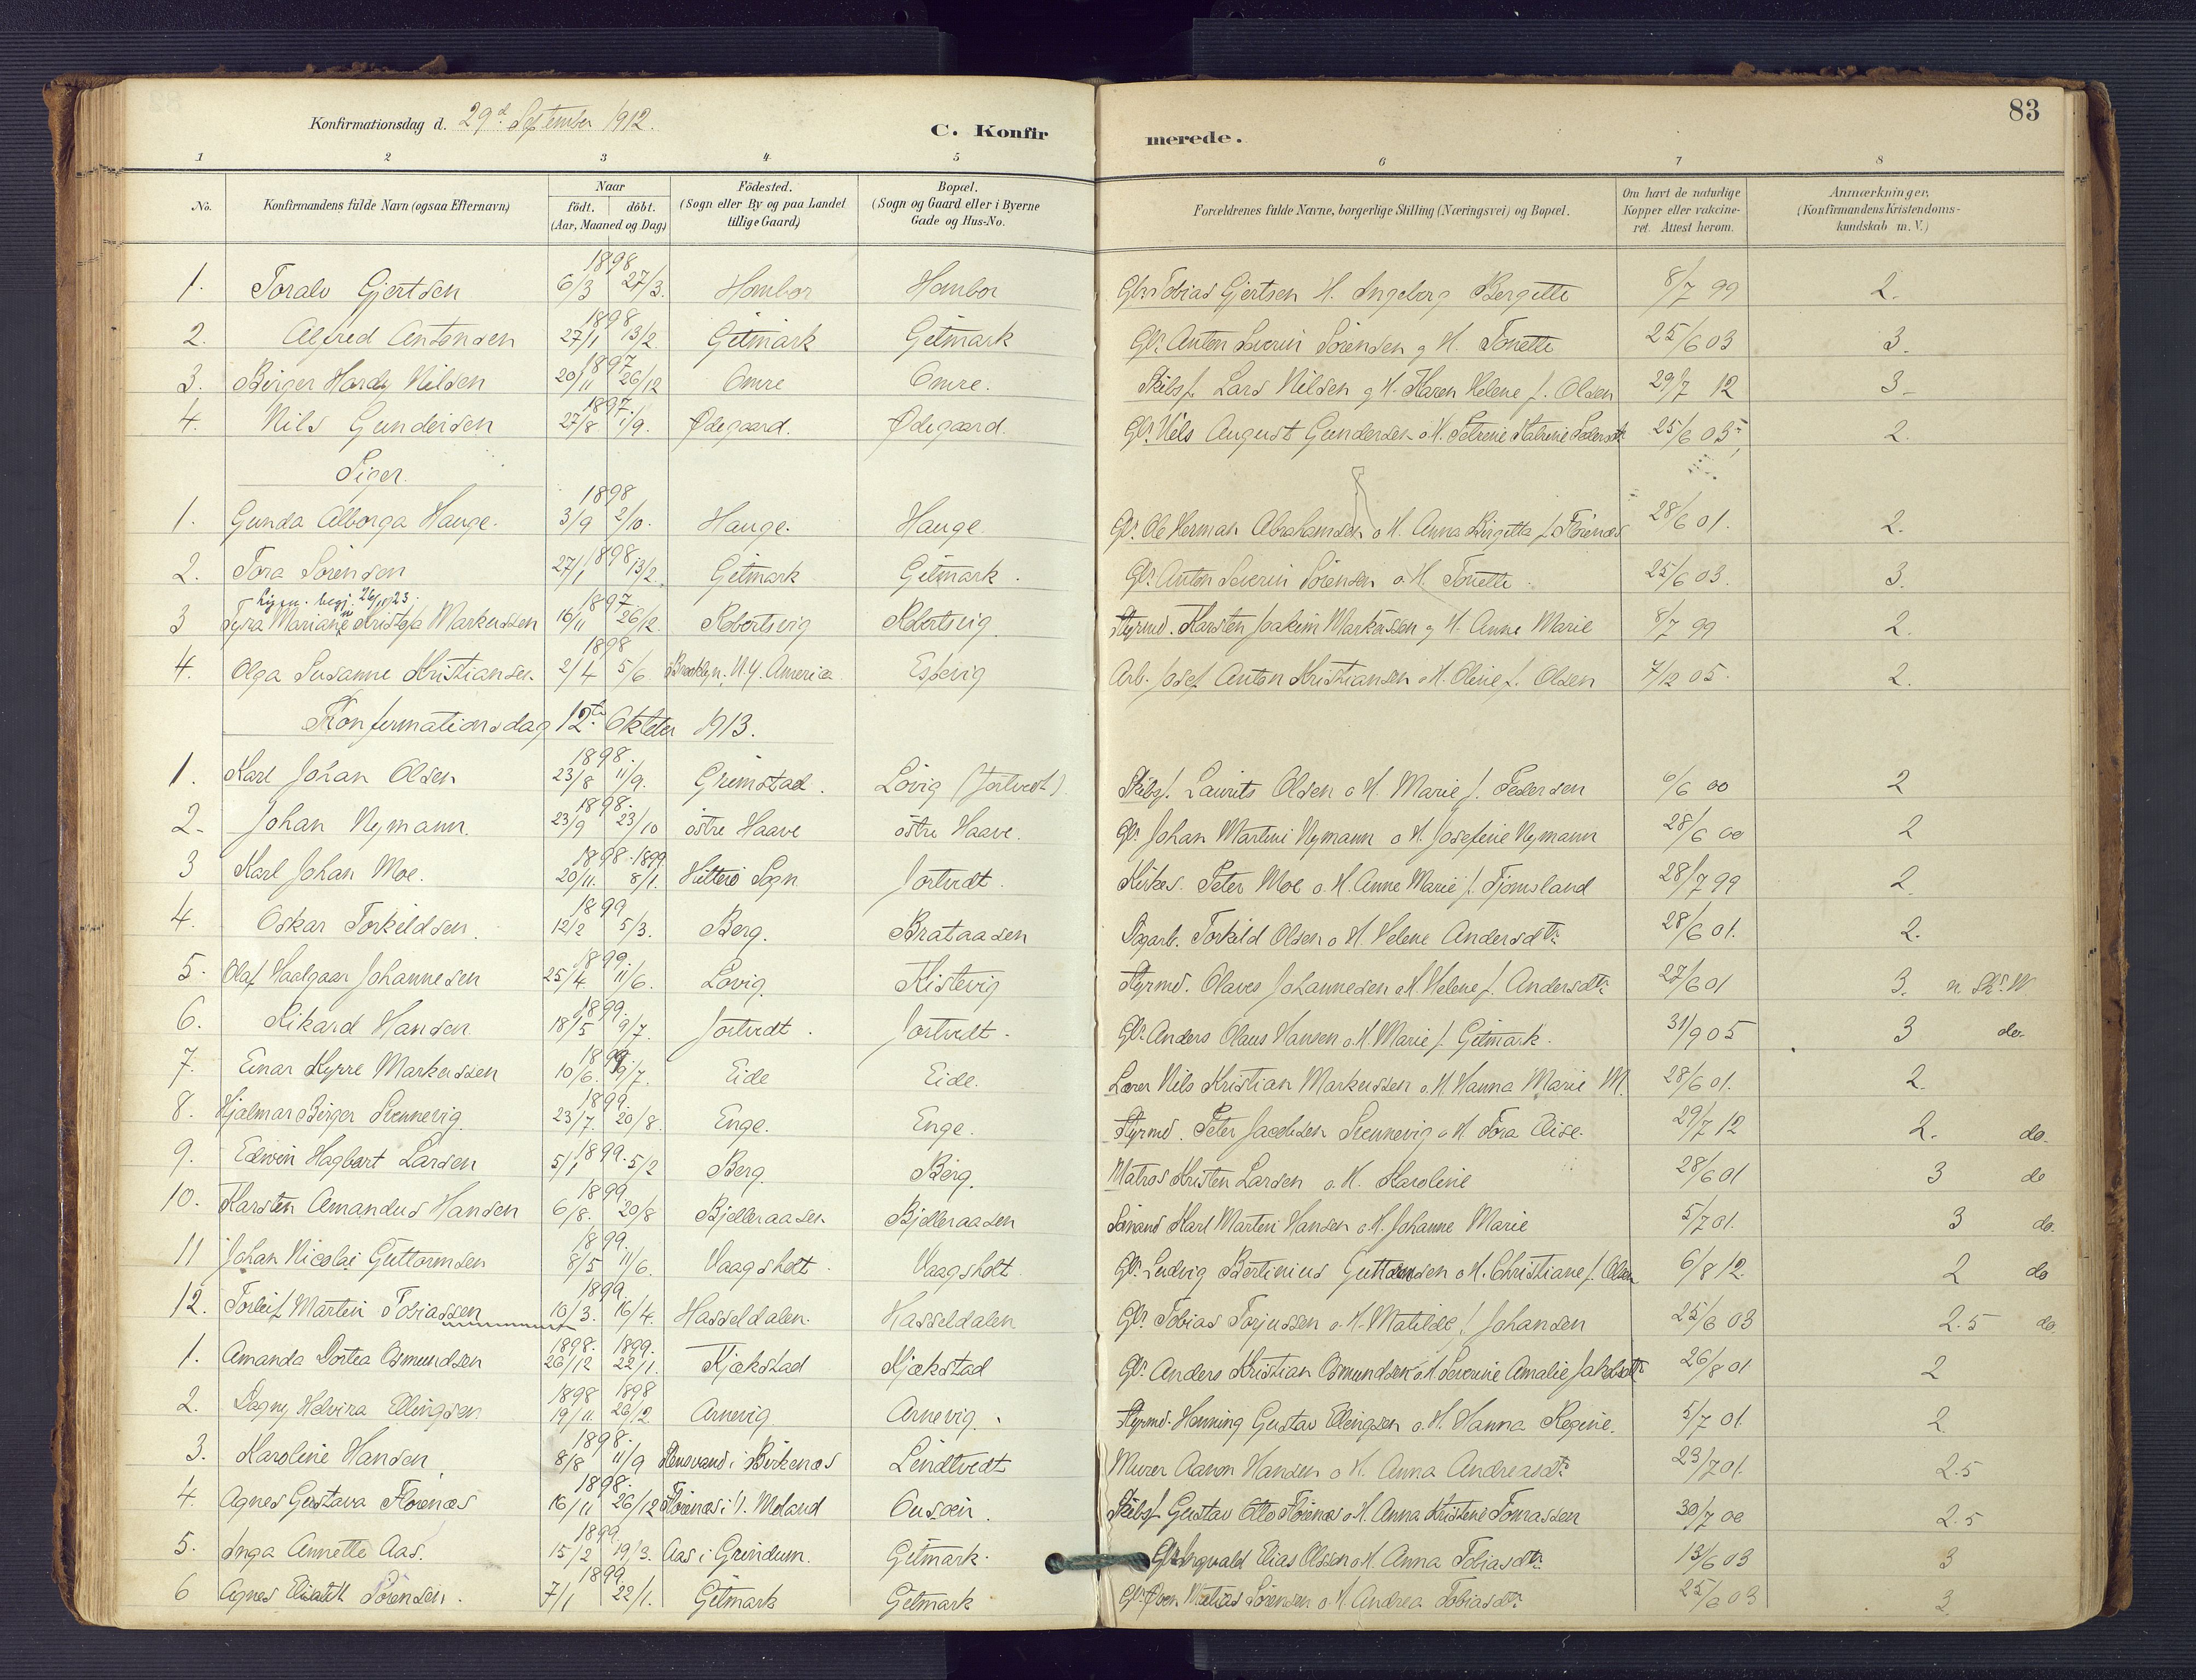 83
Konfirmationsdag d. 29d September 1912.
C. Konfirmerede.
1 2 3 4 5 6 7 8
No. Konfirmandens fulde Navn (ogsaa Efternavn) Naar født. døbt. (Aar, Maaned og Dag) Födested. (Sogn eller By og paa Landet tillige Gaard) Bopæl. (Sogn og Gaard eller i Byerne Gade og Hus-No. Forældrenes fulde Navne, borgerlige Stilling (Næringsvei) og Bopæl. Om havt de naturlige Kopper eller vakcineret. Attest herom. Anmærkninger, (Konfirmandens Kristendomskundskab m. V.)
1898
1. Toralv Gjertsen 6/3 27/3. Hombor Hombor Gbr Tobias Gjertsen H. Ingeborg Bergitte 8/7 99 2.
1898
2. Alfred Antonsen 27/1 13/2 Gitmark Gitmark Gbr. Anton Severin Sörensen g H. Tonette 25/6 03 3.
1897
3. Birger Hardy Nilsen 20/11 26/12 Omre Omre. Skibsf. Lars Nilsen g H. Karen Helene f. Olsen 29/7 12 3
1897.
4. Nils Gundersen 27/8 1/9. Ødegaard. Ødegaard. Gbr. Nils August Gundersen o H. 25/6 03 2.
Piger.
1898
1. Gunda Alborga Hauge. 3/9 2/10. Hauge. Hauge. Gbr. Ole Herman Abrahamsen o H. Anna Birgitta f. Florenæs 28/6 01. 2.
1898
2. Tora Sörensen 27/1 13/2 Gitmark Gitmark. Gbr. Anton Severin Sörensen o. H. Tonette. 25/6 03. 3.
26/11 23.
1897
3 Tyra Mariane Markussen 16/11 26/12. Robertsvig Robertsvig Styrmd. Karsten Joakim Markussen g H. Anne Marie 8/7 99 2.
1898
4. Olga Susanne Kristiansen. 2/4 5/6. Brooklyn. N.Y. America Espevig Arb. Josef Anton Kristiansen o H. Oline f. Olsen 7/12 05. 2.
Konfirmationsdag 12te Oktober 1913.
1898.
1. Karl Johan Olsen 23/8 11/9. Grimstad. Lövig (Jortvedt). Skibsf. Laurits Olsen o H. Marie f. Pedersen 6/6 00 2
1898.
2. Johan Nymann. 23/9 23/10 östre Haave östre Haave. Gbr. Johan Martini Nymann o H. Josefine Nymann 28/6 00 2
1898. 1899
3 Karl Johan Moe. 20/11. 8/1. Hitterö Sogn Jortvedt. Kirkes. Peter Moe o. H. Anne Marie f. Fjomsland 28/7 99 2.
1899
4. Oskar Torkildsen. 12/2 5/3. Berg. Brataasen Dagarb. Torkild Olsen o H. Helene Andersdtr. 28/6 01. 2.
1899.
5. Olaf Haalgaar Johannesen 25/4 11/6. Lövig. Kistevig Styrmd. Olaves Johannesen o H. Helene f. Andersdtr. 27/6 01 3.
1899.
6. Rikard Hansen 18/5 9/7. Jortvedt. Jortvedt. Gbr. Anders Olaus Hansen o H. Marie f. Gitmark. 31/9 05 3 do.
1899.
7. Einar Kyrre Markussen 10/6. 9/7. Eide Eide. Lærer Nils Kristian Markussen o. H. Hanna Marie M. 28/6 01. 2.
1899.
8. Hjalmar Birger Svennevig 23/7. 20/8. Enge. Enge. Styrmd. Peter Jacobsen Svennevig o H. Tora Aise. 29/7 12 2. do.
1899.
9. Edwin Hagbart Larsen 5/1 5/2 Berg. Berg. Matros Kristen Larsen o. H. Karoline 28/6 01 3 do
1899
10. Karsten Amandus Hansen 6/8. 20/8 Bjelleraasen Bjelleraasen Karl Martin Hansen o. H. Johanne Marie 5/7 01. 3 do.
1899.
11 Johan Nicolai Guttormsen 8/5 11/6. Vaagsholt. Vaagsholt. Gbr. Ludvig Bertinius Guttormsen o H. Christiane f. Olsen 6/8 12. 2 do
1899.
12. Torleif Martin Tobiassen 10/3. 16/4. Hasseldalen. Hasseldalen Gbr. Tobias Torjussen o. H. Matilde f. Johansen 25/6 03 2.5 do.
1898. 1899.
1. Amanda Dortea Osmundsen 26/12 22/1. Kjækstad Kjækstad Gbr. Anders Kristian Osmundsen o H. Severine Amalie Jakobsdtr 26/8 01 2
1898 1898
2. Dagny Helvira Ellingsen 19/11. 26/12. Arnevig Arnevig. Styrmd. Henning Gustav Ellingsen o. H. Hanna Regine. 5/7 01. 2
1898.
3. Karoline Hansen 8/8 11/9 i Birkenæs Lindtvedt Murer Aanon Hansen o H. Anna Andreasdtr 23/7 01. 2.5
1898.
4. Agnes Gustava Florenæs 16/11 26/12 Florenæs i V. Moland Skibsf. Gustav Otto Florenæs o H. Anna Kristine Tomassen 30/7 00 2.5
1899
5. Inga Annette Aas. 15/2 19/3. Aas i Grindum. Gitmark. Gbr. Ingvald Elias Olsson o H. Anna Tobiasdtr. 13/6 03 3
1899
6 Agnes Elisabeth Sörensen. 7/1 22/1. Gitmark Gitmark Gbr. Sven Matias Sörensen o. H. Andrea Tobiasdtr 25/6 03 3